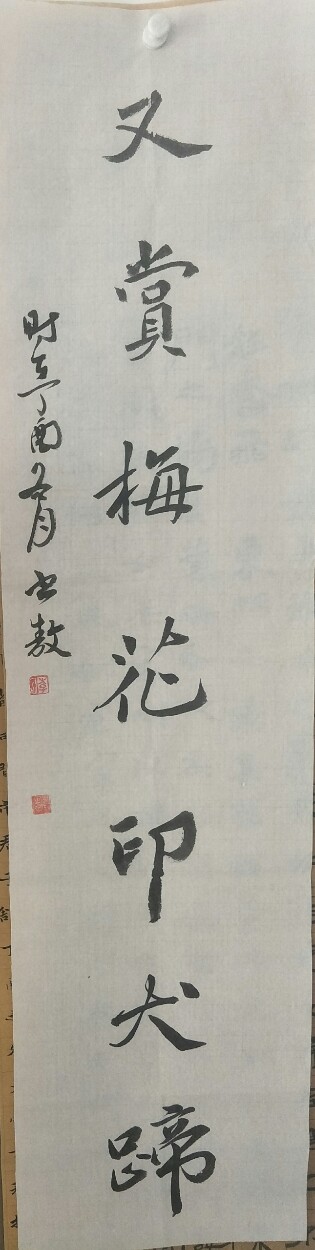 又賞梅花印犬蹄
时在丁酉冬月